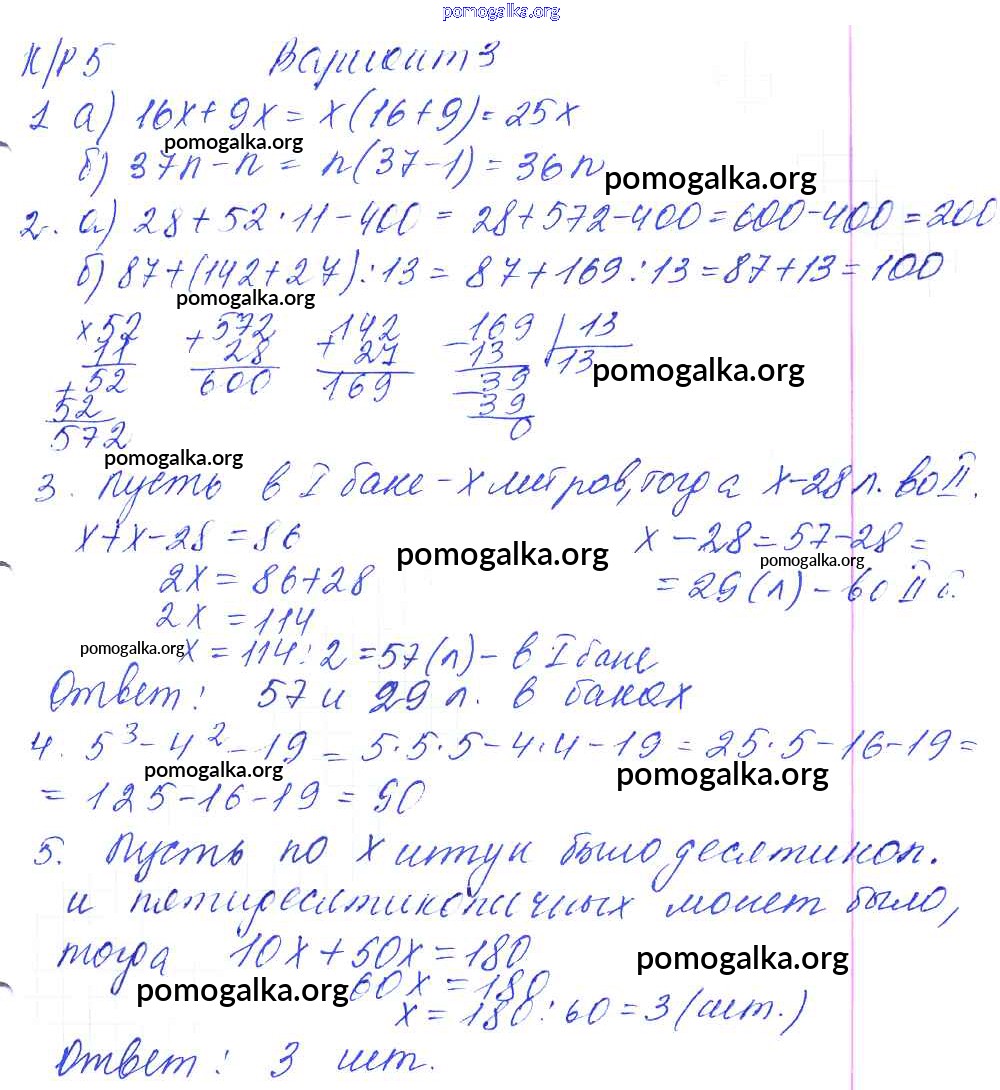 pomogalka.org
К/Р 5 Вариант 3
1 а) 16x + 9x = x(16+9) = 25x
pomogalka.org
б) 37n - n = n(37-1) = 36n
pomogalka.org
2. а) 28 + 52 · 11 - 400 = 28 + 572 - 400 = 600 - 400 = 200
б) 87 + (142 + 27) : 13 = 87 + 169 : 13 = 87 + 13 = 100
pomogalka.org
× 52 + 572 + 142 - 169 | 13
11 28 27 13 13
pomogalka.org
+ 52 600 169 - 39
52 39
572 0
pomogalka.org
3. Пусть в I баке - x литров, тогда x-28 л. во II.
x + x - 28 = 86 x - 28 = 57 - 28 =
pomogalka.org
pomogalka.org
2x = 86 + 28 = 29 (л) - во II б.
2x = 114
pomogalka.org
x = 114 : 2 = 57 (л) - в I баке
Ответ: 57 и 29 л. в баках
4. 5³ - 4² - 19 = 5·5·5 - 4·4 - 19 = 25·5 - 16 - 19 =
pomogalka.org pomogalka.org
= 125 - 16 - 19 = 90
5. Пусть по x штук было десятикоп.
и пятидесятикопеичных монет было,
тогда 10x + 50x = 180
pomogalka.org
pomogalka.org
60x = 180
x = 180 : 60 = 3 (шт.)
Ответ: 3 шт.